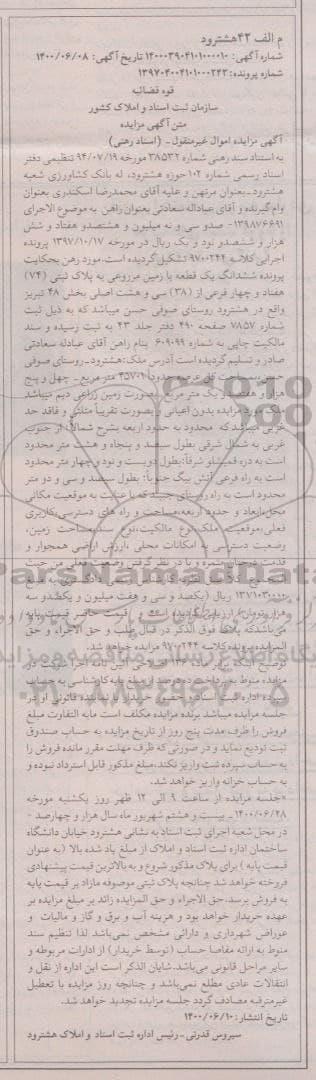 م الف ۴۲هشترود
شماره آگهی: ۱۴۰۰۰۳۹۰۴۱۰۱۰۰۰۰۱۰ تاریخ آگهی: ۱۴۰۰/۰۶/۰۸
شماره پرونده: ۱۳۹۷۰۴۰۰۴۱۰۱۰۰۰۲۴۳
قوه قضائیه
سازمان ثبت اسناد و املاک کشور
متن آگهی مزایده
آگهی مزایده اموال غیرمنقول- (اسناد رهنی)
به استناد سند رهنی شماره ۳۸۵۳۲ مورخه ۹۴/۰۷/۱۹ تنظیمی دفتر
اسناد رسمی شماره ۱۰۲ حوزه هشترود، له بانک کشاورزی شعبه
هشترود-بعنوان مرتهن و علیه آقای محمدرضا اسکندری بعنوان
وام گیرنده و آقای عباداله سعادتی بعنوان راهن به موضوع الاجرای
۱۳۹۸۷۶۶۹۱- صدو سی و نه میلیون و هشتصدو هفتاد و شش
هزار و ششصدو نود و یک ریال در مورخه ۱۳۹۷/۱۰/۱۷ پرونده
اجرایی کلاسه ۹۷۰۰۲۴۴ تشکیل گردیده است.مورد رهن بحکایت
پرونده ششدانگ یک قطعه با زمین مزروعی به پلاک ثبتی (۷۴)
هفتاد و چهار فرعی از (۳۸) سی و هشت اصلی بخش ۴۸ تبریز
واقع در هشترود روستای صوفی حسن میباشد که به ذیل ثبت
شماره ۷۸۵۷ صفحه ۴۹۰ دفتر جلد ۴۳ به ثبت رسیده و سند
مالکیت چاپی به شماره ۶۰۹۰۹۹ بنام راهن آقای عبادله سعادتی
صادر و تسلیم گردیده است آدرس ملک:هشترود-روستای صوفی
حسن بمساحت کل عرصه حدودا ۴۵۷۰۱ متر مربع- چهل و پنج
هزار و هفتصد و یک متر مربع بصورت زمین زراعی دیم میباشد
ملک مورد مزایده بدون اعیانی و بصورت تقریبا مثلثی و فاقد حد
غربی میباشد که محدود به حدود اربعه بشرح شمالا: از جنوب
غربی به شمال شرقی بطول سیصد و پنجاه و هشت متر محدود
است به دره قمیشلو شرقا:بطول دویست و نود و چهار متر محدود
است به راه فرعی آتش بیگ جنوبا: بطول سیصد و سی و دو متر
محدود است به راه روستای جبیند که با عنایت به موقعیت مکانی
محل،ابعاد و حدود اربعه،مساحت و راه های دسترسی،کاربری
فعلی،موقعیت ملک،نوع مالکیت،نوع سند،مساحت زمین،
وضعیت دسترسی به امکانات محلی ،ارزش اراضی همجوار و
قدمت درختان مثمره و با در نظر گرفتن وضعیت فعلی و از حیث
۱۳۷۱۰۳۰۰۰۰ ریال (یکصد و سی و هفت میلیون و یکصدو سه
هزار تومان) ارزیابی گردیده است و قیمت حاضر قیمت پایه
می‌باشدکه پلاک فوق الذکر در قبال طلب و حق الاجراء و حق
المزایده پرونده کلاسه ۹۷۰۰۲۴۴ مزایده خواهد شد.
جلسه مزایده میباشد برنده مزایده مکلف است مابه التفاوت مبلغ
فروش را ظرف مدت پنج روز از تاریخ مزایده به حساب صندوق
ثبت تودیع نماید و در صورتی که ظرف مهلت مقرر مانده فروش را
به حساب سپرده ثبت واریز نکند،مبلغ مذکور قابل استرداد نبوده و
به حساب خزانه واریز خواهد شد.
*جلسه مزایده از ساعت ۹ الی ۱۲ ظهر روز یکشنبه مورخه
۱۴۰۰/۰۶/۲۸ - بیست و هشتم شهریور ماه سال هزار و چهارصد -
در محل شعبه اجرای ثبت اسناد به نشانی هشترود خیابان دانشگاه
ساختمان اداره ثبت اسناد و املاک از مبلغ یاد شده بالا (به عنوان
قیمت پایه ) برای پلاک مذکور شروع و به بالاترین قیمت پیشنهادی
فروخته خواهد شد چنانچه پلاک ثبتی موصوفه مازاد بر قیمت پایه
به فروش برسد،حق الاجراء و حق المزایده زائد بر مبلغ مزایده بر
عهده خریدار خواهد بود و هزینه آب و برق و گاز و مالیات و
عوارض شهرداری و دارائی مشخص نمی‌باشد لذا تنظیم سند
منوط به ارائه مفاصا حساب (توسط خریدار) از ادارات مربوطه و
سایر مراحل قانونی می‌باشد.شایان الذکر است این اداره از نقل و
انتقالات عادی مطلع نمی‌باشد و چنانچه روز مزایده با تعطیل
غیرمترقبه مصادف گردد جلسه مزایده تجدید خواهد شد.
تاریخ انتشار: ۱۴۰۰/۰۶/۱۰
سیروس قدرتی-رئیس اداره ثبت اسناد و املاک هشترود